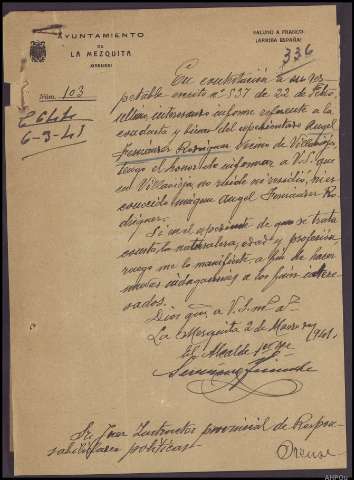 AYUNTAMIENTO
DE
LA MEZQUITA
(ORENSE)
SALUDO A FRANCO:
¡ARRIBA ESPAÑA!
336
Núm. 103
6-3-41
En contestación a su res
petable escrito nº 537 de 22 de
último, interesando informe referente a la
conducta y bienes del expedientado Angel
Fernández Rodríguez vecino de
tengo el honor de informar a V.S. que
en no reside ni residió, ni es
conocido ningun Angel Fernández Ro
driguez.
Si en el expediente de que se trata
consta la naturaleza, edad y profesión,
ruego me lo manifieste, a fin de hacer
nuevas indagaciones a los fines intere
sados.
Dios gue. a V.S. m. a.
La Mezquita 2 de Marzo 1941.
El Alcalde
Sr. Juez Instructor provincial de Respon
sabilidades políticas.
Orense
AHPOu